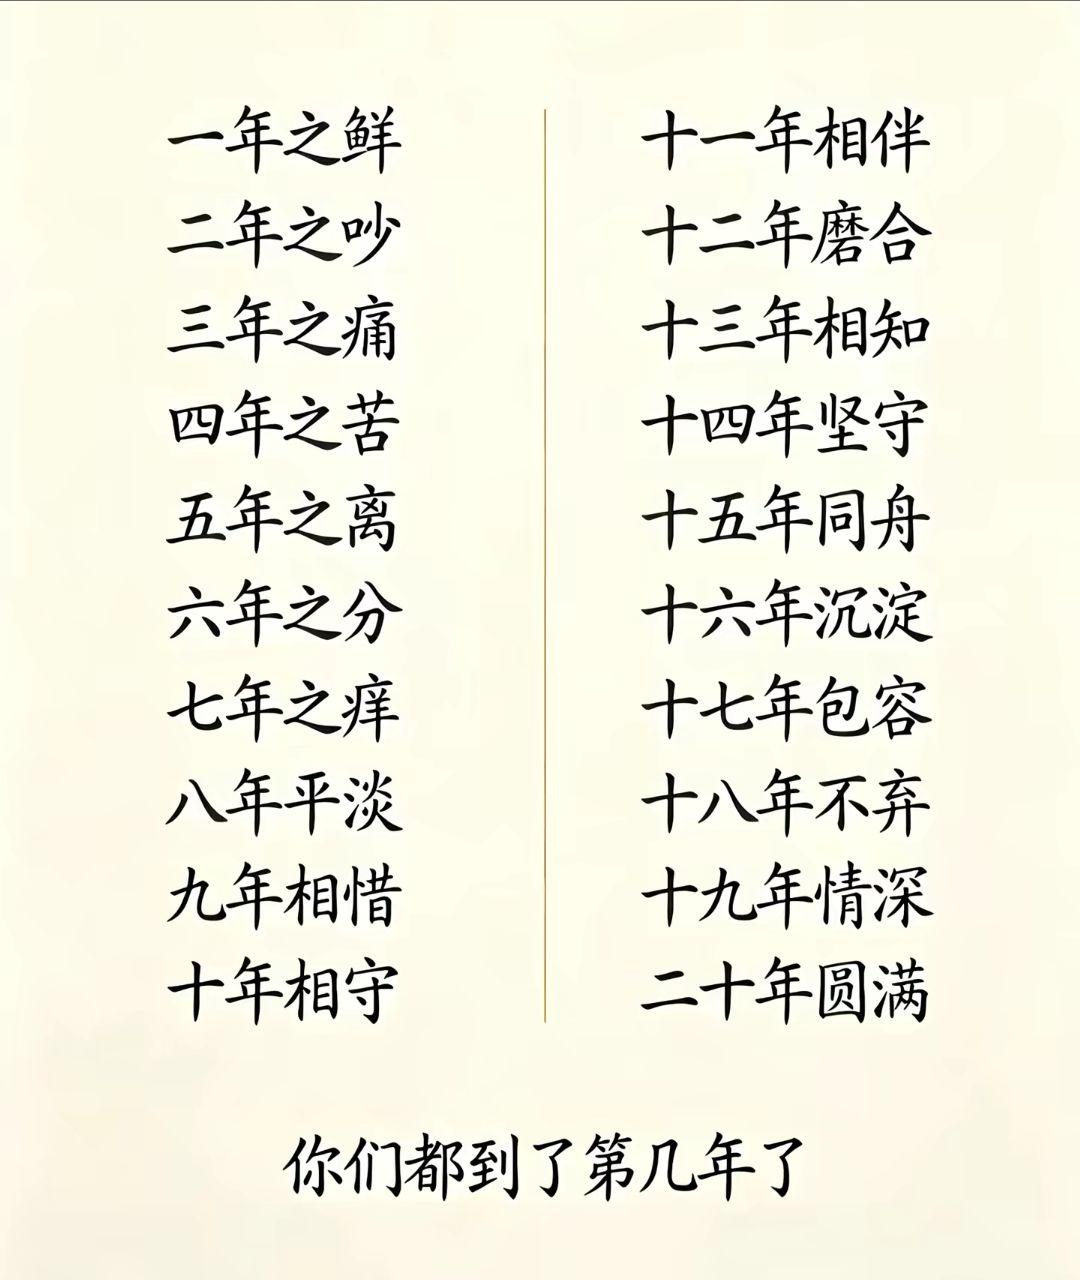 一年之鲜
二年之吵
三年之痛
四年之苦
五年之离
六年之分
七年之痒
八年平淡
九年相惜
十年相守
十一年相伴
十二年磨合
十三年相知
十四年坚守
十五年同舟
十六年沉淀
十七年包容
十八年不弃
十九年情深
二十年圆满
你们都到了第几年了